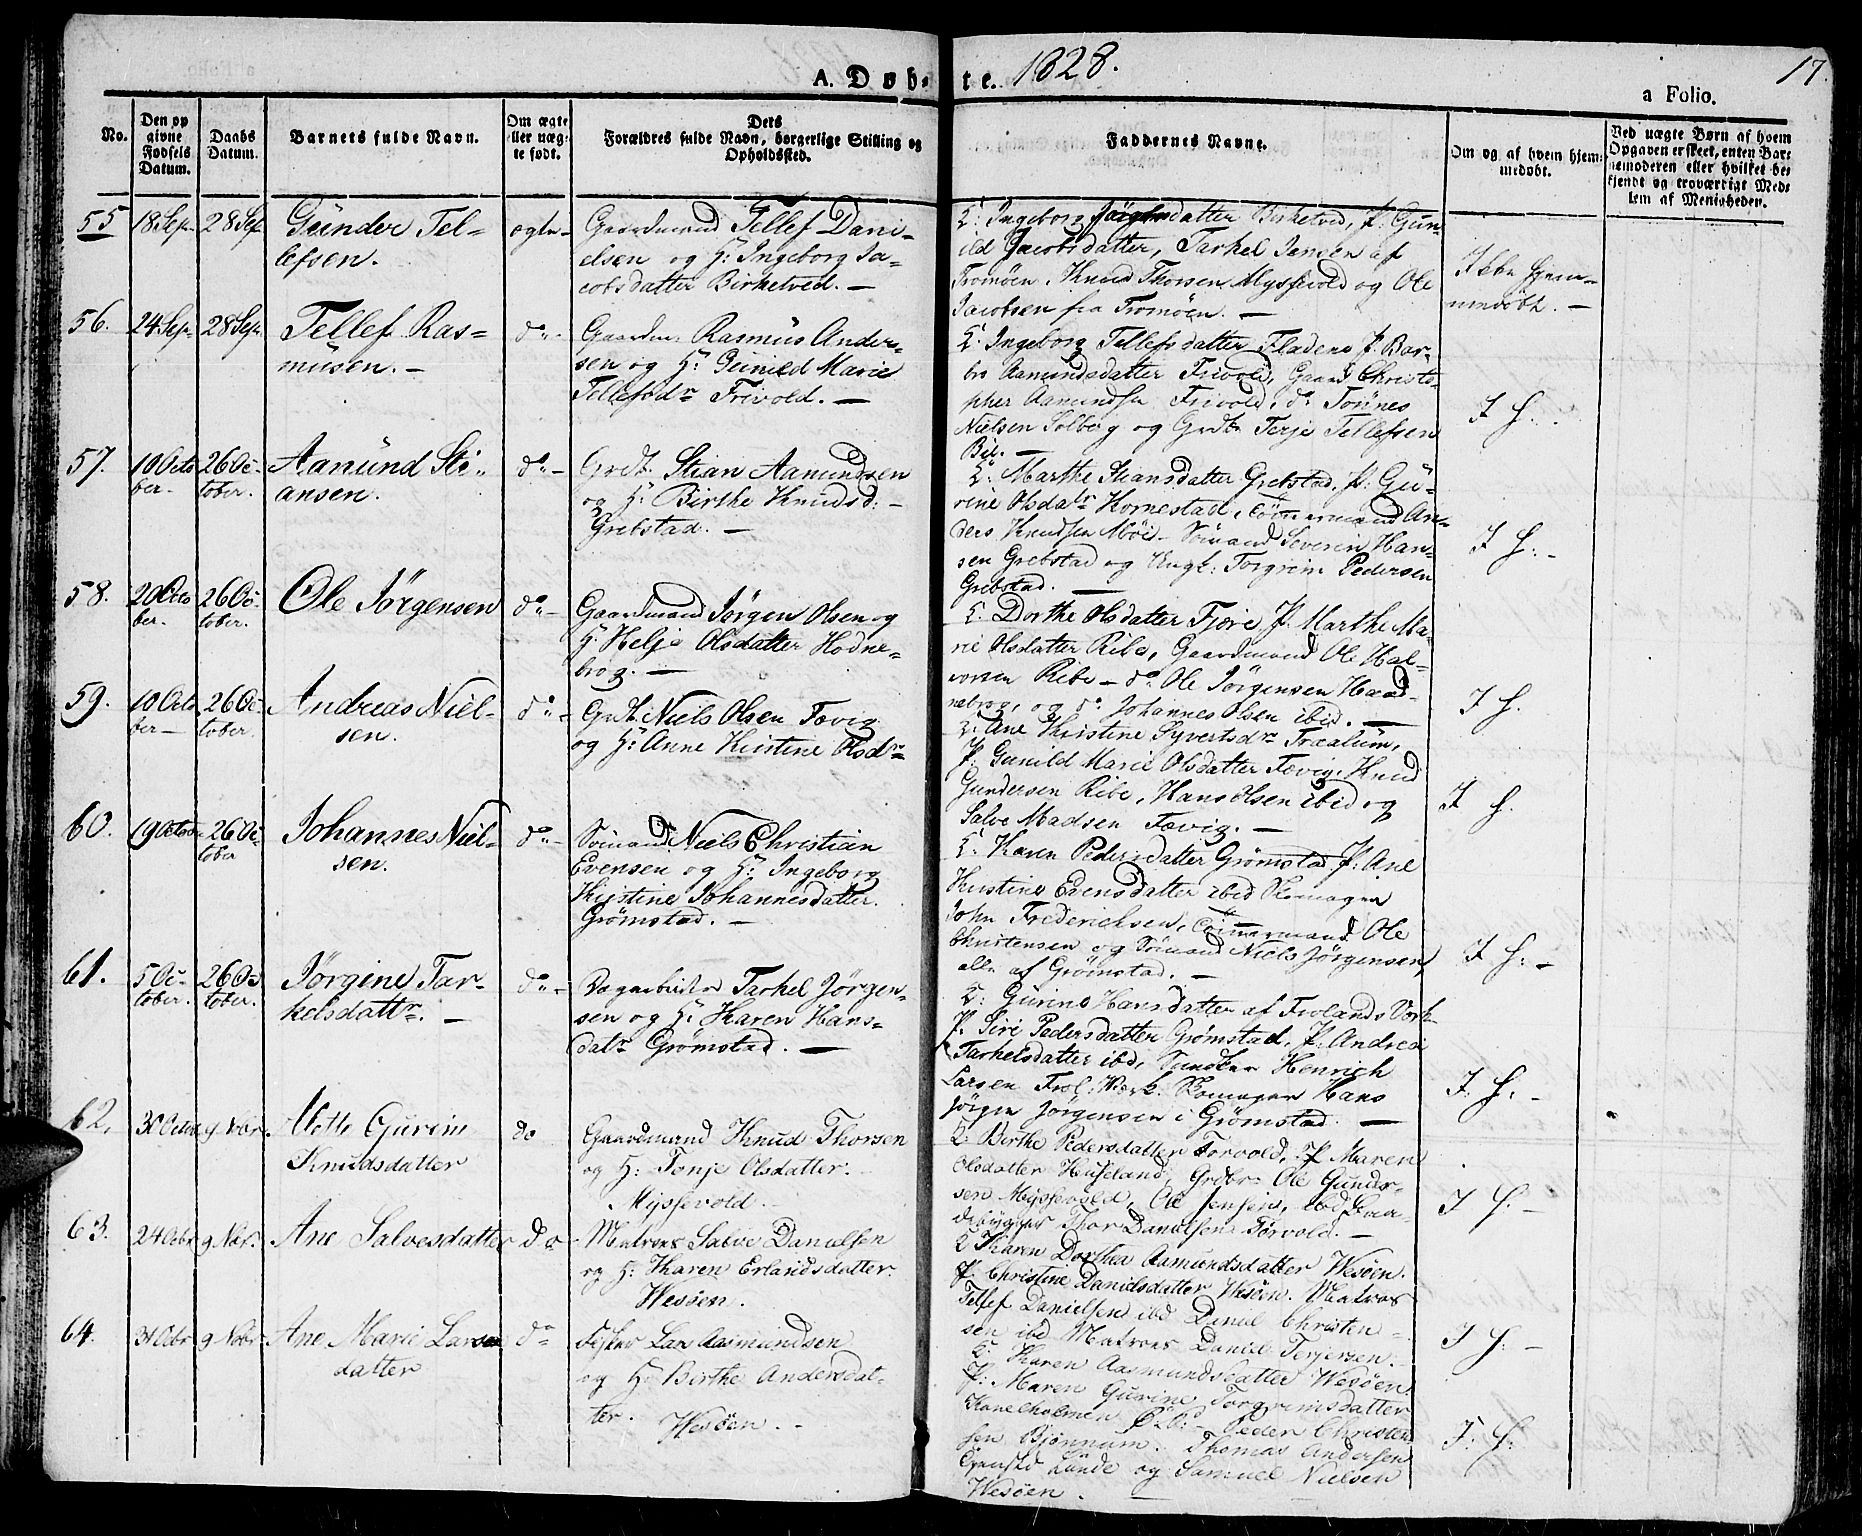 A. Døb-
te. 1828.
17.
a Folio.
No.
Den op
givne
Fødsels
Datum.
Daabs
Datum.
Barnets fulde Navn.
Om ægte
eller uæg-
te født.
Dets
Forældres fulde Navn, borgerlige Stilling og
Opholdssted.
Faddernes Navne.
Om og af hvem hjem-
medøbt.
Ved uægte Børn af hvem
Opgaven er skeet, enten Bar-
nemoderen eller hvilket be-
kjendt og troværdigt Med-
lem af Menigheden.
55 18 Sep. 28 Sep Gunder Tel- ægte Gaardmand Tellef Dani-
lefsen. elsen og H: Ingeborg Ja-
cobsdatter Birketved. —
Ingeborg Jørgensdatter Birketved, J. Gun-
ild Jacobsdatter, Tarkel Jensen af
Tromøen, Knud Thorsen Myssevold og Ole
Jacobsen fra Tromøen. —
Ikke hjem-
medøbt. —
56. 24 Sep. 28 Sep. Tellef Ras- do Gaardm. Rasmus Ander-
musen. — sen og H: Gunild Marie
Tellefsdr Frivold. —
Ingeborg Tellefsdatter Fladen J. Bar-
bro Aamundsdatter Frivold, Gaard Christo-
pher Aamundsen Frivold, do Tønnes
Nielsen Solberg og Grdbr Terje Tellefsen
Bie. —
I H.
57. 10 Octo 26 Oc- Aanund Sti- do Grdb. Stian Aamundsen
ber. tober. ansen. og H: Birthe Knudsd: —
Grebstad. —
Marthe Stiansdatter Grebstad. J: Gu-
rine Olsdatr Hornestad, Tømmermand An-
ders Knudsen Møi — Sømand Severin Han-
sen Grebstad og Ungk: Torgrim Pedersen
Grebstad. —
I H: —
58. 20 Octo 26 Oc- Ole Jørgensen do Gaardmand Jørgen Olsen og
ber. tober. H: Helje Olsdatter Hodne-
brog. —
Dorthe Olsdatter Fjære J. Marthe Ma-
rie Olsdatter Ribe, Gaardmand Ole Hal-
vorsen Ribe — do Ole Jørgensen Haad-
nebrog, og do Johannes Olsen ibid. —
I H.
59. 10 Octo 26 Oc- Andreas Niel- do Grdb. Niels Olsen Fævig
ber — tober. sen. og H: Anne Kirstine Olsdr
Ane Kristine Syvertsdr Trælum,
J. Gunild Marie Olsdatter Fævig, Knud
Gundersen Ribe, Hans Olsen ibid og
Salve Madsen Fævig. —
I H.
60. 19 Octobr 26 Oc- Johannes Niel- do Sømand Niels Christian
tober sen. Evensen og H: Ingeborg
Kirstine Johannesdatter.
Grømstad. —
Karen Pedersdatter Grømstad J: Ane
Kirstine Evensdatter ibid Skomager
John Frederichsen, Tømmermand Ole
Christensen og Sømand Niels Jørgensen
alle af Grømstad. —
I H: —
61. 5 Oc- 26 Oc- Jørgine Tar- do Dagarbeider Tarkel Jørgen-
tober. tober. kelsdattr. — sen og H: Karen Hans-
datr Grømstad. —
Gurine Hansdatter af Frolands Værk
J. Siri Pedersdatter Grømstad, J: Andrea
Tarkelsdatter ibd, Henrich
Larsen Frol. Værk. Skomager Hans
Jørgen Jørgensen i Grømstad. —
I. H. —
62. 30 Octbr 9 Nobr. Mette Gurine do Gaardmand Knud Thorsen
Knudsdatter og H: Tonje Olsdatter.
Myssevold.
Birthe Pedersdatter Torvold, J. Maren
Olsdatter Huseland, Grdbr Ole Gunder-
sen Myssevold, Ole Jensen, ibd Gaar-
debruger Thor Danielsen Torvold. —
I H. —
63. 24 Octbr 9 Nobr. Ane Salvesdatter do Matros Salve Danielsen
og H: Karen Erlandsdatter.
Wesøen.
Karen Dorthea Aamundsdatter Wesøen.
J. Christine Danielsdatter Wesøen. Matros
Tellef Danielsen ibd Daniel Christen-
sen ibd Matros Daniel Terjersen.
I H: —
64. 31 Octbr 9 Nobr. Ane Marie Larsen do Fisker Lars Aasmundsen
datter og H: Birthe Andersdat-
ter. Wesøen. —
Karen Aasmundsdatter Wesøen
J: Maren Gurine Torgrimsdatter
Peder Christen
sen Bjønnum. Thomas Andersen
Lunde og Samuel Nielsen
Wesøen.
I: H: